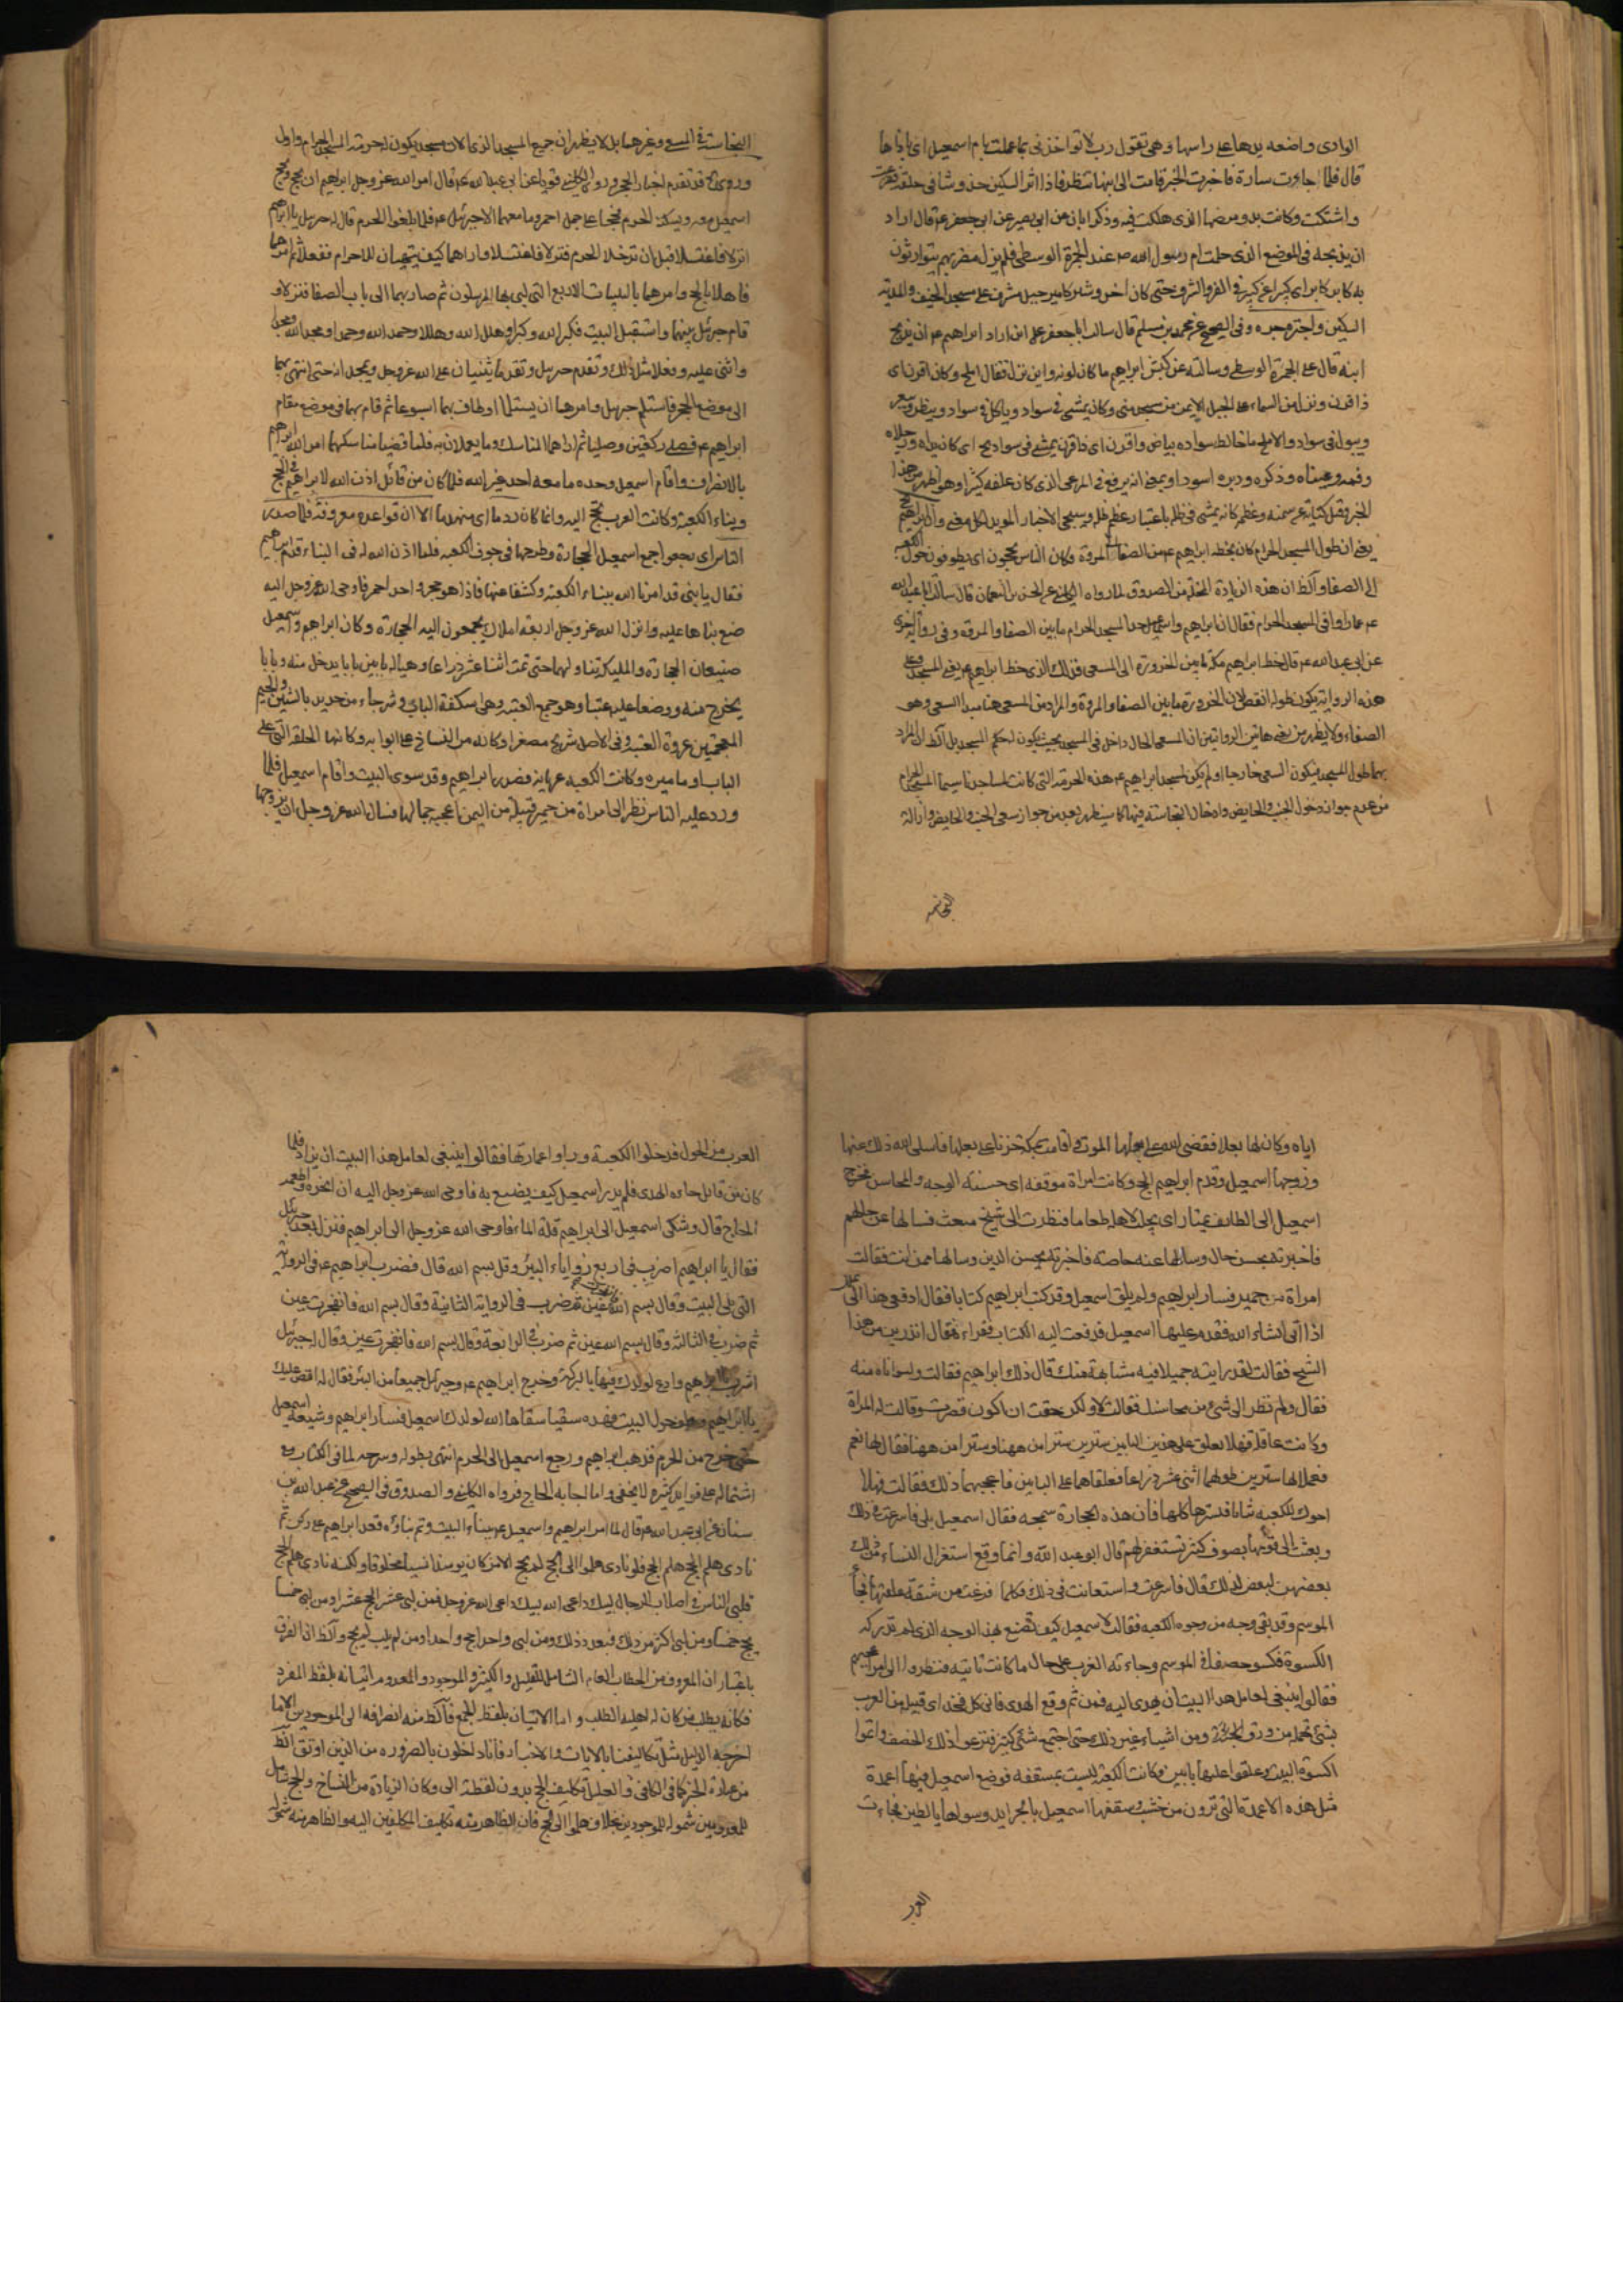 الوادى واضعه يدها على راسها وهى تقول رب لا تواخذنى بما عملت بام اسمعيل اى باذاها
قال فلما جاءت سارة فاخبرت الخبر قامت الى ابنها تنظر فاذا اثر السكين خدوشا فى حلقه ففزعت
واشتكت وكانت بدو مرضها الذى هلكت فيه وذكر ابان عن ابى بصير عن ابى جعفر ع قال اراد
ان يذبحه فى الموضع الذى حملت ام رسول الله ص عند الجمرة الوسطى فلم يزل مضربهم يتوارثون
به كابر عن كابر اى كبيرا عن كبير فى
السكين واجتره جبره وفى الصحيح عن محمد بن مسلم قال سالت ابا جعفر ع اين اراد ابراهيم ع ان يذبح
ابنه قال على الجمرة الوسطى وسالته عن كبش ابراهيم ما كان لونه واين نزل فقال املح وكان اقرن اى
ذا قرن ونزل من السماء على الجبل الايمن من مسجد منى وكان يمشى فى سواد وياكل فى سواد وينظر ويبعر
ويبول فى سواد والاملح ما خالط سواده بياض واقرن اى ذا قرن يمشى فى سواد اى كان يداه ورجلاه
وفمه وعيناه وذكره ودبره اسود او بمعنى انه يرفع فى المرعى الذى كان علفه كثيرا وهو اظهر من هذا
الخبر وقيل كناية عن سمنه وعظمه كانه يمشى فى ظله باعتبار عظم ظله وسيجئ الاخبار المويد لكل معنى
يعنى ان طول المسجد الحرام كان بخطه ابراهيم ع من الصفا الى المروة وكان الناس يحجون اى يطوفون حول الكعبة
الى الصفا والظ ان هذه الزيادة من الصدوق لما رواه الكلينى عن الحسن بن النعمان قال سالت ابا عبد الله
ع عما زادوا فى المسجد الحرام فقال ان ابراهيم واسمعيل حدا المسجد الحرام ما بين الصفا والمروة وفى رواية اخرى
عن ابى عبد الله ع قال خط ابراهيم بمكة ما بين الحزورة الى المسعى فذلك الذى خط ابراهيم ع يعنى المسجد وعلى
هذه الرواية يكون طوله انقص لان الحزورة ما بين الصفا والمروة والمراد من المسعى هنا مبدا السعى وهو
الصفا ولا يظهر من هاتين الروايتين ان المسعى الحال داخل فى المسجد بحيث يكون له حكم المسجد بل الظ ان المراد
بهما طول المسجد فيكون المسعى خارجا او لم يكن لمسجد ابراهيم ع هذه الحرمة التى كانت لمساجدنا سيما المسجد الحرام
من عدم جواز دخول الجنب والحايض وادخال النجاسة فيها كما سيظهر بعد من جواز سعى الجنب والحايض وازالة
النجاسة
النجاسة فى المسعى وغيرها بل لا يظهر ان جميع المسجد الذى الان مسجد يكون له حرمة المسجد الحرام واول
وروى قد تقدم اخبار الحج وروى الكلينى قويا عن ابى عبد الله ع قال امر الله عز وجل ابراهيم ان يحج ويحج
اسمعيل معه ويسكنه الحرم فحجا على جمل احمر وما معهما الا جبرئيل ع فلما بلغوا الحرم قال له جبرئيل يا ابراهيم
انزلا فاغتسلا قبل ان تدخلا الحرم فنزلا فاغتسلا واراهما كيف يتهيئان للاحرام ففعلا ثم امرهما
فاهلا بالحج وامرهما بالتلبيات الاربع التى لبى بها المرسلون ثم صار بهما الى باب الصفا فنزلا و
قام جبرئيل بينهما واستقبل البيت فكبر الله وكبرا وهلل الله وهللا وحمد الله وحمدا ومجد الله ومجدا
واثنى عليه وفعلا مثل ذلك وتقدم جبرئيل وتقدما يثنيان على الله عز وجل ويمجدانه حتى انتهى بهما
الى موضع الحجر فاستلم جبرئيل وامرهما ان يستلما وطاف بهما اسبوعا ثم قام بهما فى موضع مقام
ابراهيم ع فصلى ركعتين وصليا ثم اراهما المناسك وما يعملان به فلما قضيا مناسكهما امر الله ابراهيم
بالانصراف واقام اسمعيل وحده ما معه احد غير امه فلما كان من قابل اذن الله لابراهيم فى الحج
وبناء الكعبة وكانت العرب تحج اليه وانما كان ردما اى منهدما الا ان قواعده معروفة فلما صدر
الناس اى رجعوا جمع اسمعيل الحجارة وطرحها فى جوف الكعبة فلما اذن الله له فى البناء قدم ابراهيم
فقال يا بنى قد امرنا الله ببناء الكعبة وكشفا عنها فاذا هو حجر واحد احمر فاوحى الله عز وجل اليه
ضع بناها عليه وانزل الله عز وجل اربعة املاك يجمعون اليه الحجارة وكان ابراهيم واسمعيل
يضعان الحجارة والمليكة تناولهما حتى تمت اثنا عشر ذراعا وهيا له بابين بابا يدخل منه وبابا
يخرج منه ووضعا عليه عتبا وهو جمع العتبة وهى اسكفة الباب وشرجا من حديد بالشين والجيم
المعجمتين عروة العتبة وفى الاصل شريج مصغرا وكانه من النساخ على ابوابه وكانها الحلقة التى على
الباب او مامره وكانت الكعبة عريانة فصدر ابراهيم وقد سوى البيت واقام اسمعيل فلما
ورد عليه الناس نظر الى امراة من حمير قبيلة من اليمن اعجبه جمالها فسال الله عز وجل ان يزوجها
اياه وكان لها بعل فقضى الله على بعلها الموت واقامت بمكة حزنا على بعلها فاسلى الله ذلك عنها
وزوجها اسمعيل وقدم ابراهيم الحج وكانت امراة موفقه اى حسنة الوجه والمحاسن فخرج
اسمعيل الى الطايف يمتار اى يجلب لاهله طعاما فنظرت الى شيخ شعث فسالها عن حالهم
فاخبرته بحسن حال وسالها عنه خاصة فاخبرته بحسن الدين وسالها ممن انت فقالت
امراة من حمير فسار ابراهيم ولم يلق اسمعيل وقد كتب ابراهيم كتابا فقال ادفعى هذا الى بعلك
اذا اتى انشاء الله فقدم عليها اسمعيل فدفعت اليه الكتاب فقراه فقال اتدرين من هذا
الشيخ فقالت لقد رايته جميلا فيه مشابهة منك قال ذلك ابراهيم فقالت واسواتاه منه
فقال ولم نظر الى شئ من محاسنك فقالت لا ولكن خفت ان اكون قصرت وقالت له المراة
وكانت عاقلة فهلا تعلق على هذين البابين سترين سترا من ههنا وسترا من ههنا فقال لها نعم
فعملا لها سترين طولهما اثنى عشر ذراعا فعلقاهما على البابين فاعجبهما ذلك فقالت فهلا
احوك للكعبة ثيابا فتسترها كلها فان هذه الحجارة سمجه فقال اسمعيل بلى فاسرعت فى ذلك
وبعثت الى قومها بصوف كثير تستغزلهم قال ابو عبد الله وانما وقع استغزال النساء من ذلك
بعضهن لبعض لذلك قال فاسرعت واستعانت فى ذلك فكلما فرغت من شقة علقتها فجا
الموسم وقد بقى وجه من وجوه الكعبة فقالت لاسمعيل كيف تصنع بهذا الوجه الذى لم تدركه
الكسوة فكسوه خصفا فجا الموسم وجاءته العرب على حال ما كانت تاتيه فنظروا الى امر اعجبهم
فقالوا ينبغى لعامل هذا البيت ان يهدى اليه فمن ثم وقع الهدى فاتى كل فخذ اى قبيل من العرب
بشئ تحمله من ورق او من اشياء غير ذلك حتى اجتمع شئ كثير فنزعوا ذلك الخصف واتموا
كسوة البيت وعلقوا عليها بابين وكانت الكعبة ليست بمسقفه فوضع اسمعيل فيها اعمدة
مثل هذه الاعمدة التى ترون من خشب وسقفها اسمعيل بالجرايد وسواها بالطين فجاءت
العرب
العرب من الحول فدخلوا الكعبة وراوا عمارتها فقالوا ينبغى لعامل هذا البيت ان يزاد فلما
كان من قابل جاءه الهدى فلم يدر اسمعيل كيف يصنع به فاوحى الله عز وجل اليه ان انحره واطعمه
الحاج قال وشكى اسمعيل الى ابراهيم قلة الماء فاوحى الله عز وجل الى ابراهيم فنزل بعد جبرئيل
فقال يا ابراهيم اضرب فى اربع زوايا البئر وقل بسم الله قال فضرب ابراهيم ع فى الزواية
التى تلى البيت وقال بسم الله فانفجرت عين ثم ضرب فى الزواية الثانية وقال بسم الله فانفجرت عين
ثم ضرب فى الثالثة وقال بسم الله عين ثم ضرب فى الرابعة وقال بسم الله فانفجرت عين وقال له جبرئيل
اشرب يا ابراهيم وادع لولدك فيها بالبركة وخرج ابراهيم ع وجبرئيل جميعا من البئر فقال له افض عليك
يا ابراهيم وطف حول البيت فهذه سقيا سقاها الله لولدك اسمعيل فسار ابراهيم وشيعه اسمعيل
حتى خرج من الحرم فذهب ابراهيم ورجع اسمعيل الى الحرم انتهى بطوله
اشتماله على فوايد كثيرة لا يخفى واما اجابة الحاج فرواه الكلينى والصدوق فى الصحيح عن عبد الله بن
سنان عن ابى عبد الله ع قال لما امر ابراهيم واسمعيل ع ببناء البيت وتم بناؤه قعد ابراهيم على ركن ثم
نادى هلم الحج هلم الحج فلو نادى هلموا الى الحج لم يحج الا من كان يومئذ انسيا مخلوقا ولكنه نادى هلم الحج
فلبى الناس فى اصلاب الرجال لبيك داعى الله لبيك داعى الله عز وجل فمن لبى عشرا حج عشرا ومن لبى خمسا
يحج خمسا ومن لبى اكثر من ذلك فبعدد ذلك ومن لبى واحدا حج واحدا ومن لم يلب لم يحج والظ ان الفرق
باعتبار ان المعروف من الخطاب العام الشامل للقليل والكثير والموجود والمعدوم اتيانه بلفظ المفرد
فكانه يطلب من كان له اهلية الطلب واما الاتيان بلفظ الجمع فالظ منه انصرافه الى الموجودين الا ما
اخرجه الدليل مثل تكاليفنا بالايات والاخبار فانا داخلون بالضرورة من الدين اوثق الظ
من عبارة الخبر كما فى الكافى والعلل تكليف الحج بدون لفظة الى وكان الزيادة من النساخ
للمعدومين شموله للموجودين بخلاف هلموا الى الحج فان الظاهر منه تكليف المكلفين اليه والظاهر منه